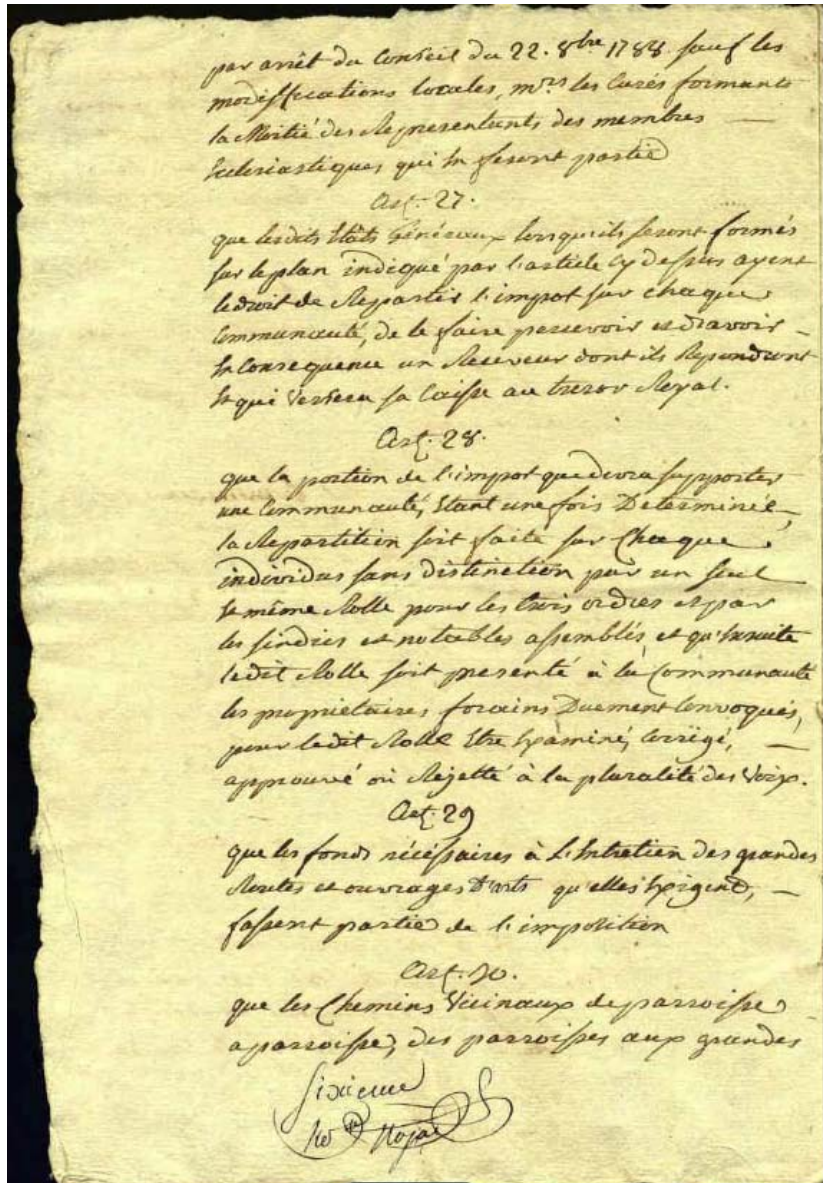 par arrêt du Conseil du 22. 8bre 1788 sauf les
modiffications locales, mrs les Curés formants
la Moitié des Representants des membres
Ecclesiastiques qui En feront partie
Art. 27.
que lesdits Etâts Généraux lorsqu'ils seront formés
sur le plan indiqué par l'article Cy dessus ayent
le droit de Repartir l'impot sur chaque
Communauté, de le faire percevoir et d'avoir
En Consequence un Receveur dont ils Repondront
Et qui Versera sa Caisse au tresor Royal.
Art. 28.
que la portion de l'impot que devra supporter
une Communauté, Etant une fois Determinée,
la Repartition soit faite sur Chaque
individus sans distinction par un seul
Et même Rolle pour les trois ordres et par
les sindics et notables assemblés, et qu'Ensuite
ledit Rolle soit presenté à la Communauté
les proprietaires forains Duement Convoqués,
pour ledit Rolle Etre Examiné, Corrigé,
approuvé ou Rejetté à la pluralité des Voix.
Art. 29
que les fonds nécéssaires à L'Entretien des grandes
Routes et ouvrages D'arts qu'elles Exigent,
fassent partie de l'imposition
Art. 30.
que les Chemins Vicinaux de parroisse
a parroisse, des parroisses aux grandes
Sixieme